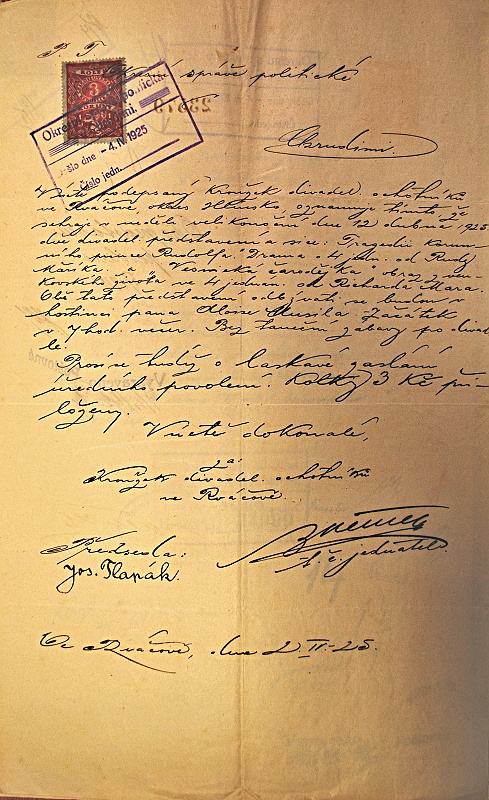 P. T.
správě politické
KOLEK
3
Okresní politická
Došlo dne - 4. IV. 1925
číslo jedn.
Chrudimi.
Uctivě podepsaný Kroužek divadel. ochotníků
ve Rváčově okres Hlinsko oznamuje tímto že
sehraje v neděli velikonoční dne 12 dubna 1925
dvě divadel. představení a sice: Tragedii korun-
ního prince Rudolfa. Drama o 4 jedn. od Rud.
Maříka. a Vesnická čarodějka obraz z
života ve 4 jednán. od Richarda Mara.
Obě tato představení odbývati se budou v
hostinci pana Aloise Musila začátek
v 7 hod. večer. Bez taneční zábavy po divad-
le.
Prosí se tudíž o laskavé zaslání
úředního povolení. Kolky 3 Kč při-
loženy.
V úctě dokonalé,
za:
Kroužek divadel. ochotníků
ve Rváčově.
Předseda:
Jos. Tlapák.
t. č. jednatel.
Ve Rváčově, dne 2. IV. 25.